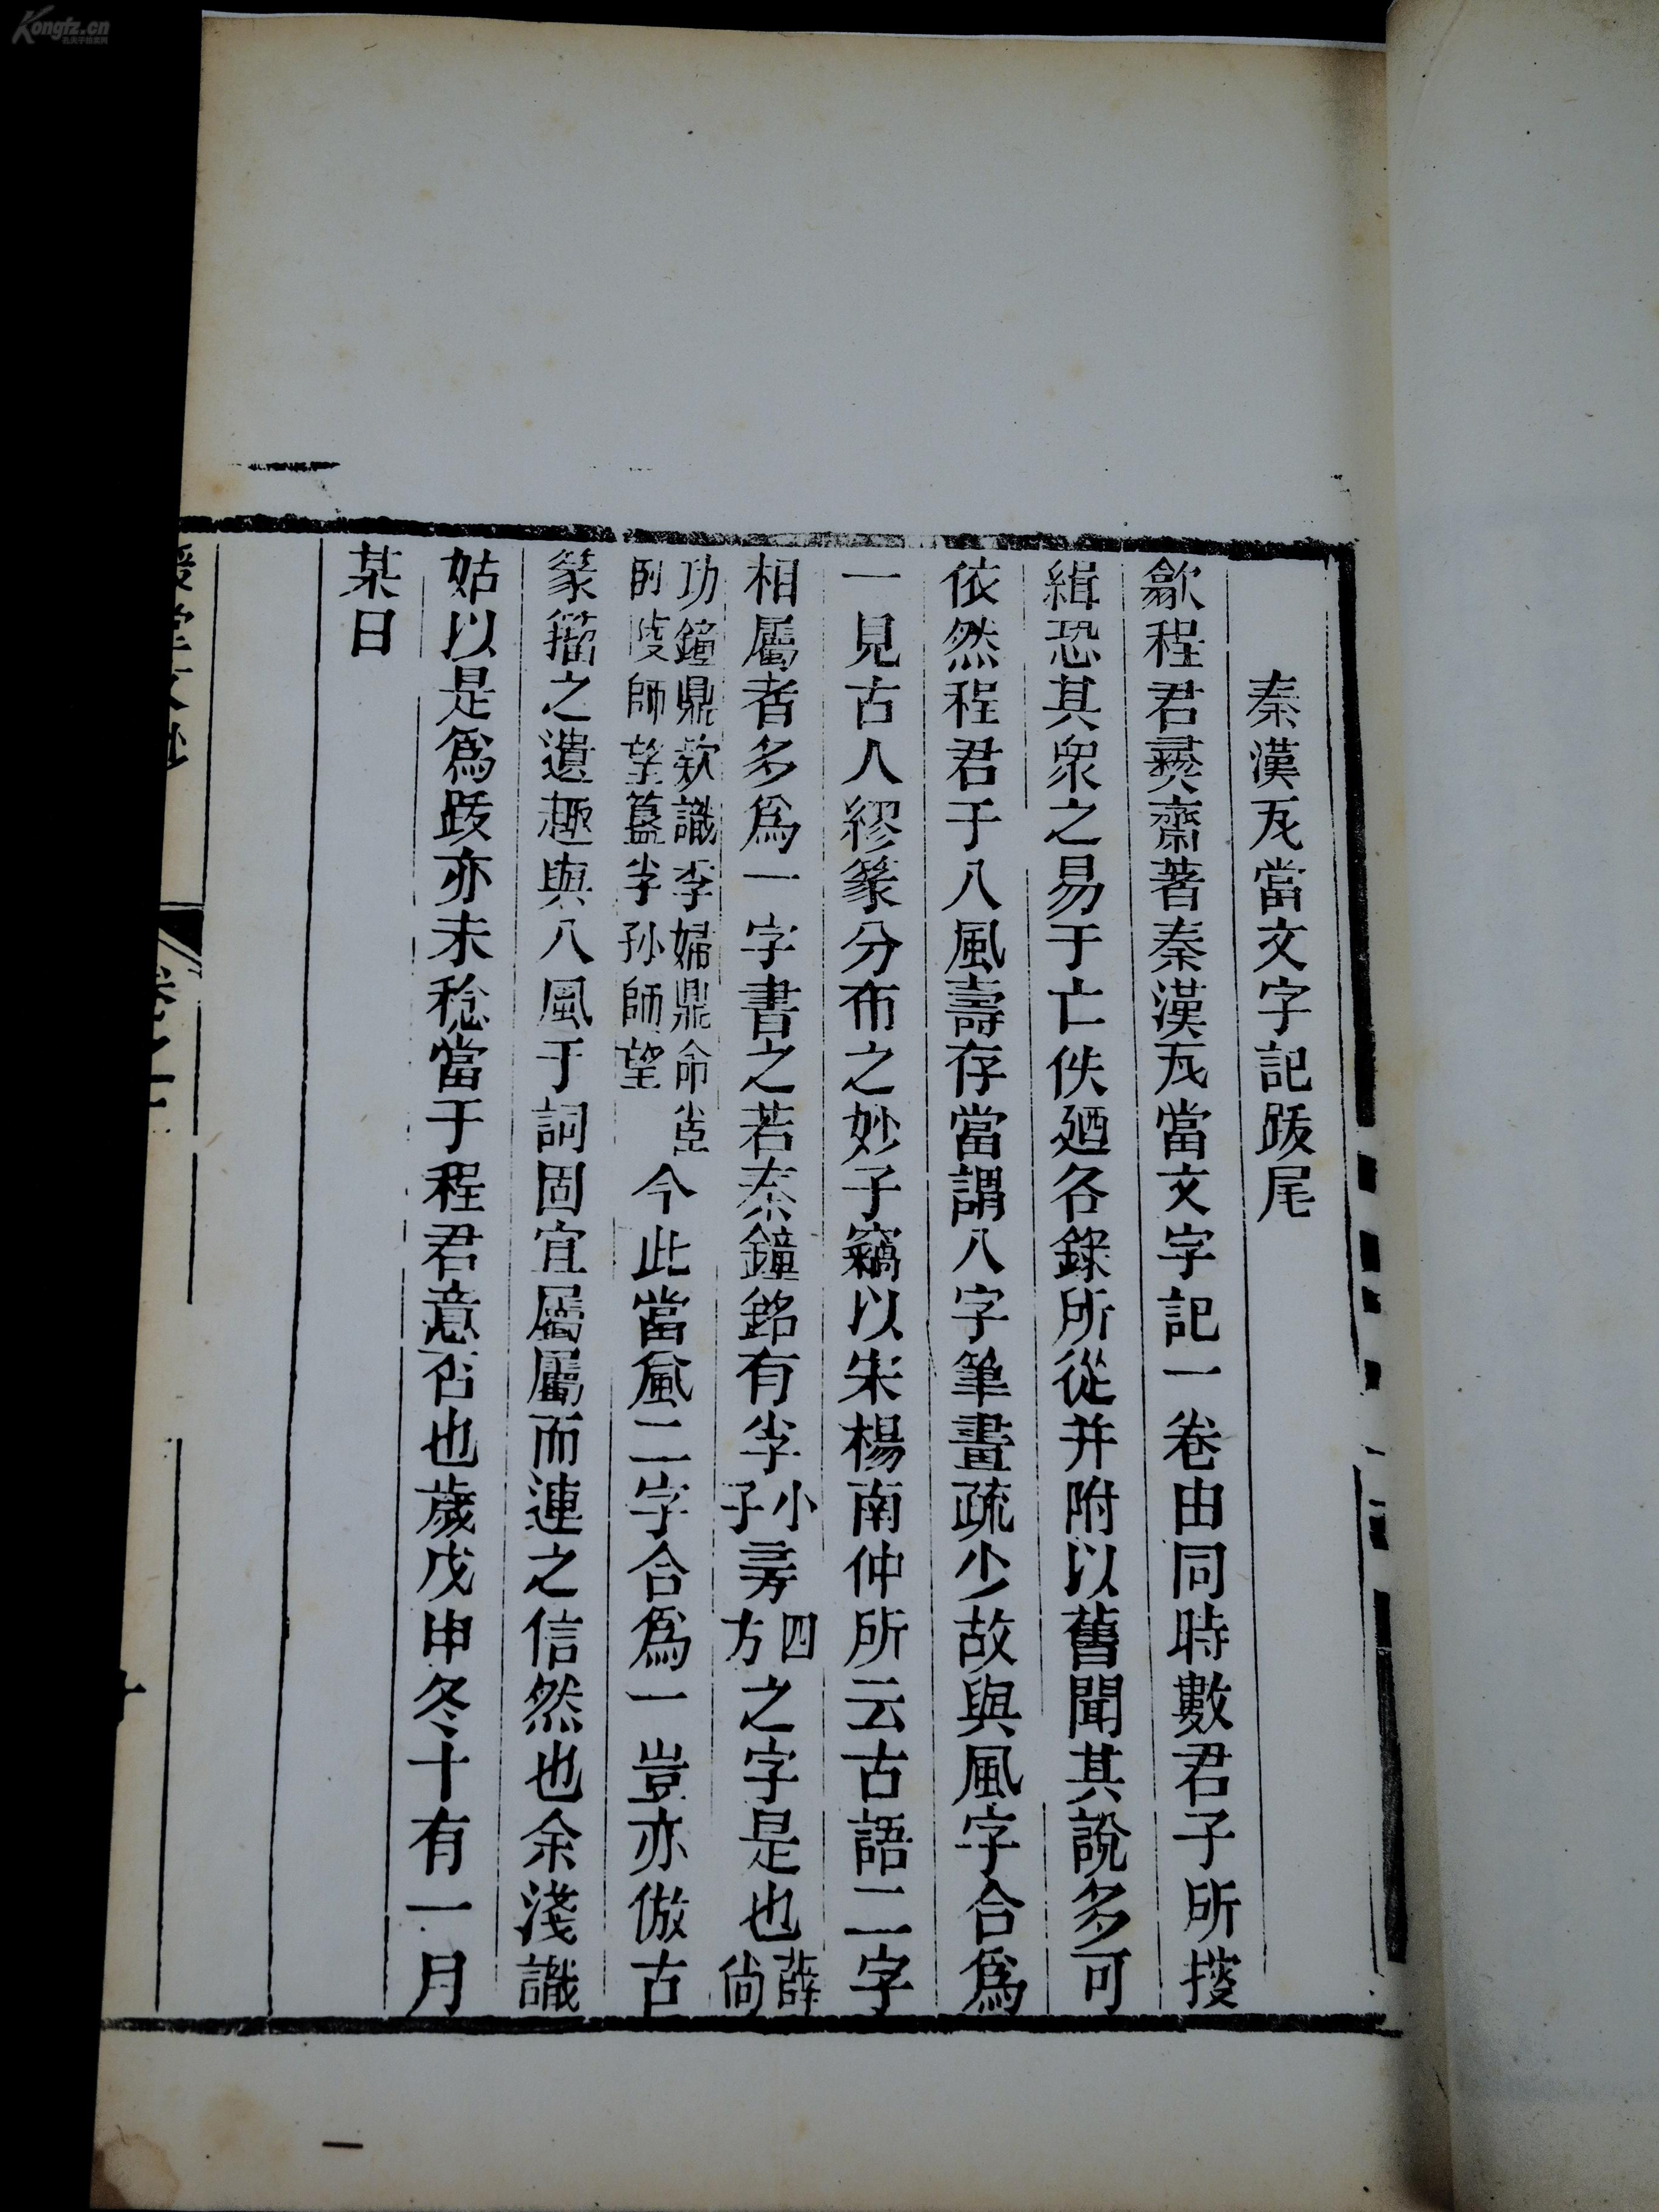 秦漢瓦當文字記跋尾
歙程君彛齋著秦漢瓦當文字記一卷由同時數君子所搜
緝恐其衆之易于亡佚廼各錄所從并附以舊聞其說多可
依然程君于八風壽存當謂八字筆畫疏少故與風字合爲
一見古人繆篆分布之妙子竊以宋楊南仲所云古語二字
相屬者多爲一字書之若秦鐘銘有㝊小子㝑四方之字是也薛尙
功鐘鼎欵識李婦鼎命㝊師望簋㝊孫師望今此當䬌二字合爲一豈亦倣古
篆籀之遺趣與八風于詞固宜屬屬而連之信然也余淺識
姑以是爲跋亦未稔當于程君意否也歲戊申冬十有一月
某日
堂文鈔
卷之二
Kongfz.cn
孔夫子旧书网